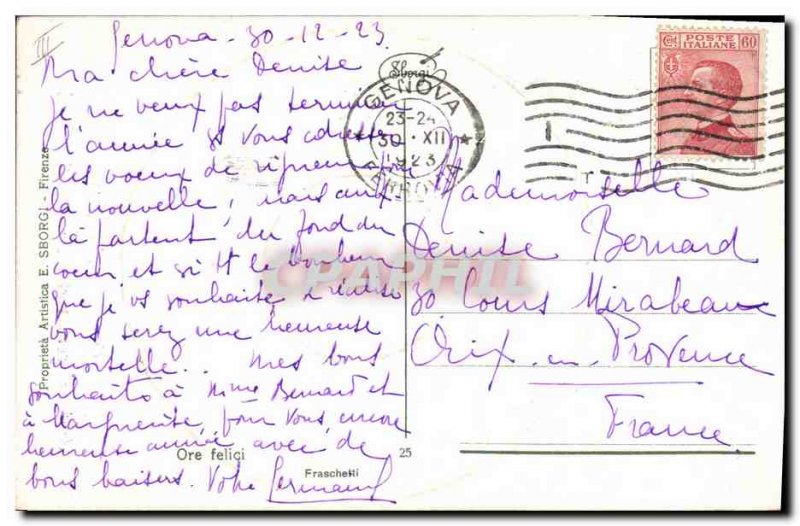 III
Genova - 30-12-23
Ma chère Denise
je ne veux pas terminer
l'année
les voeux de
la nouvelle, mais aux
là partent du fond du
coeur et si tt le bonheur
que je vs souhaite se réalise
vous serez une heureuse
mortelle.. mes bons
souhaits à Mme Bernard et
à Marguerite, pour vous, encore
heureuse année avec de
bons baisers. Votre Germaine
Sborgi
GENOVA
23-24
30·XII
1923
FERROVIA
POSTE
ITALIANE
60
Mademoiselle
Denise Bernard
30 Cours Mirabeau
Aix-en-Provence
France
Proprietà Artistica E. SBORGI - Firenze
Ore felici
25
Fraschetti
CPAPHIL